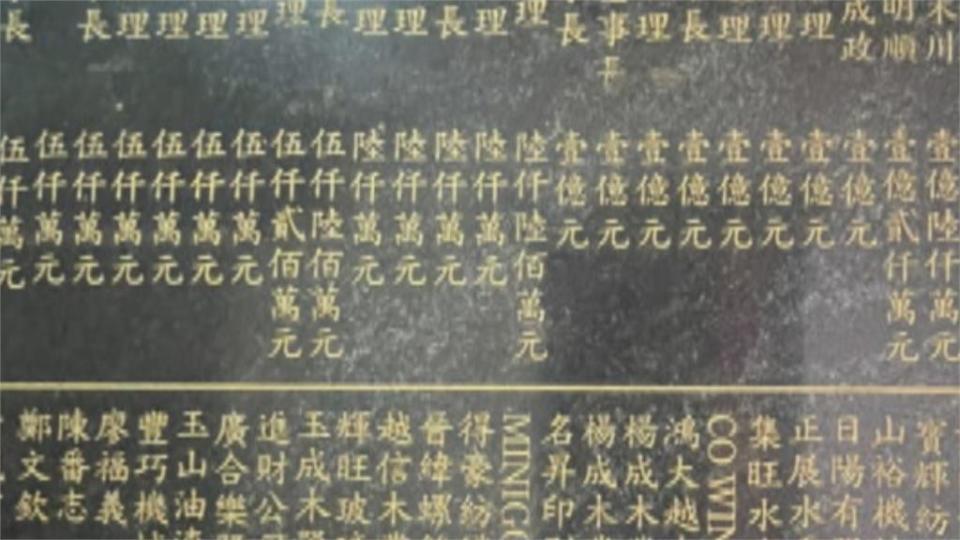 川
明順
成政
理
理
理
長
理
事長
長
理
理
理
理
理
長
理
理
理
理
理
長
長
壹億陸仟萬元
壹億貳仟萬元
壹億元
壹億元
壹億元
壹億元
壹億元
壹億元
壹億元
壹億元
陸仟陸佰萬元
陸仟萬元
陸仟萬元
陸仟萬元
陸仟萬元
伍仟陸佰萬元
伍仟貳佰萬元
伍仟萬元
伍仟萬元
伍仟萬元
伍仟萬元
伍仟萬元
伍仟萬元
伍仟萬元
寶輝紡
山裕機
日陽有
正展水
集旺水
CO WIN
鴻大越
楊成木
楊成木
名昇印
MINIG
得豪紡
晉緯螺
越信木
輝旺玻
玉成木
進財公
廣合樂
玉山油
豐巧機
廖福義
陳番志
鄭文欽